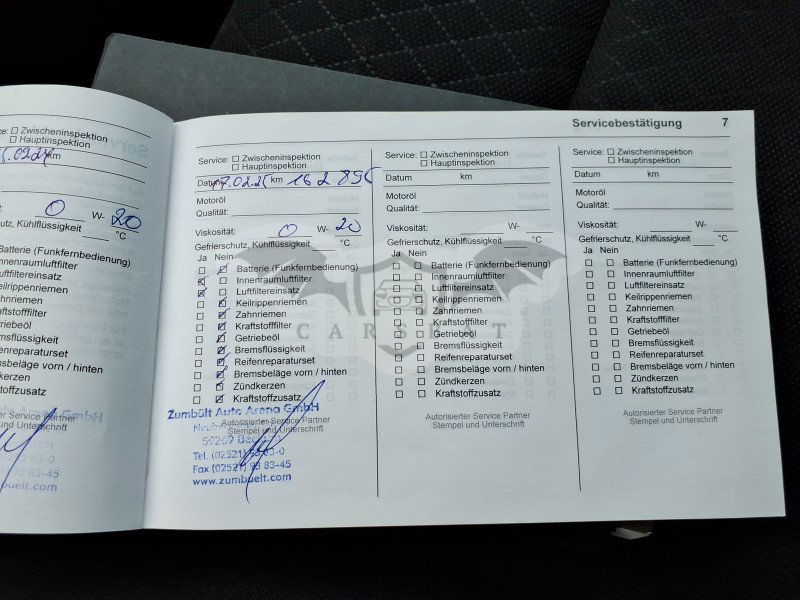 Servicebestätigung 7
Service: ☐ Zwischeninspektion
☐ Hauptinspektion
km
0 W- 20
°C
schutz, Kühlflüssigkeit
Batterie (Funkfernbedienung)
Innenraumluftfilter
Luftfiltereinsatz
Keilrippenriemen
Zahnriemen
Kraftstofffilter
Getriebeöl
Bremsflüssigkeit
Reifenreparaturset
Bremsbeläge vorn / hinten
Zündkerzen
Kraftstoffzusatz
Service Partner
Unterschrift
Service: ☐ Zwischeninspektion
☐ Hauptinspektion
Datum km
Motoröl
Qualität:
Viskosität: 0 W- 20
Gefrierschutz, Kühlflüssigkeit °C
Ja Nein
Batterie (Funkfernbedienung)
Innenraumluftfilter
Luftfiltereinsatz
Keilrippenriemen
Zahnriemen
Kraftstofffilter
Getriebeöl
Bremsflüssigkeit
Reifenreparaturset
Bremsbeläge vorn / hinten
Zündkerzen
Kraftstoffzusatz
Zumbült Auto Arena GmbH
Autorisierter Service Partner
Stempel und Unterschrift
Tel. (02521) 93 83-0
Fax (02521) 93 83-45
www.zumbuelt.com
Service: ☐ Zwischeninspektion
☐ Hauptinspektion
Datum km
Motoröl
Qualität:
Viskosität: W-
Gefrierschutz, Kühlflüssigkeit °C
Ja Nein
Batterie (Funkfernbedienung)
Innenraumluftfilter
Luftfiltereinsatz
Keilrippenriemen
Zahnriemen
Kraftstofffilter
Getriebeöl
Bremsflüssigkeit
Reifenreparaturset
Bremsbeläge vorn / hinten
Zündkerzen
Kraftstoffzusatz
Autorisierter Service Partner
Stempel und Unterschrift
Service: ☐ Zwischeninspektion
☐ Hauptinspektion
Datum km
Motoröl
Qualität:
Viskosität: W-
Gefrierschutz, Kühlflüssigkeit °C
Ja Nein
Batterie (Funkfernbedienung)
Innenraumluftfilter
Luftfiltereinsatz
Keilrippenriemen
Zahnriemen
Kraftstofffilter
Getriebeöl
Bremsflüssigkeit
Reifenreparaturset
Bremsbeläge vorn / hinten
Zündkerzen
Kraftstoffzusatz
Autorisierter Service Partner
Stempel und Unterschrift